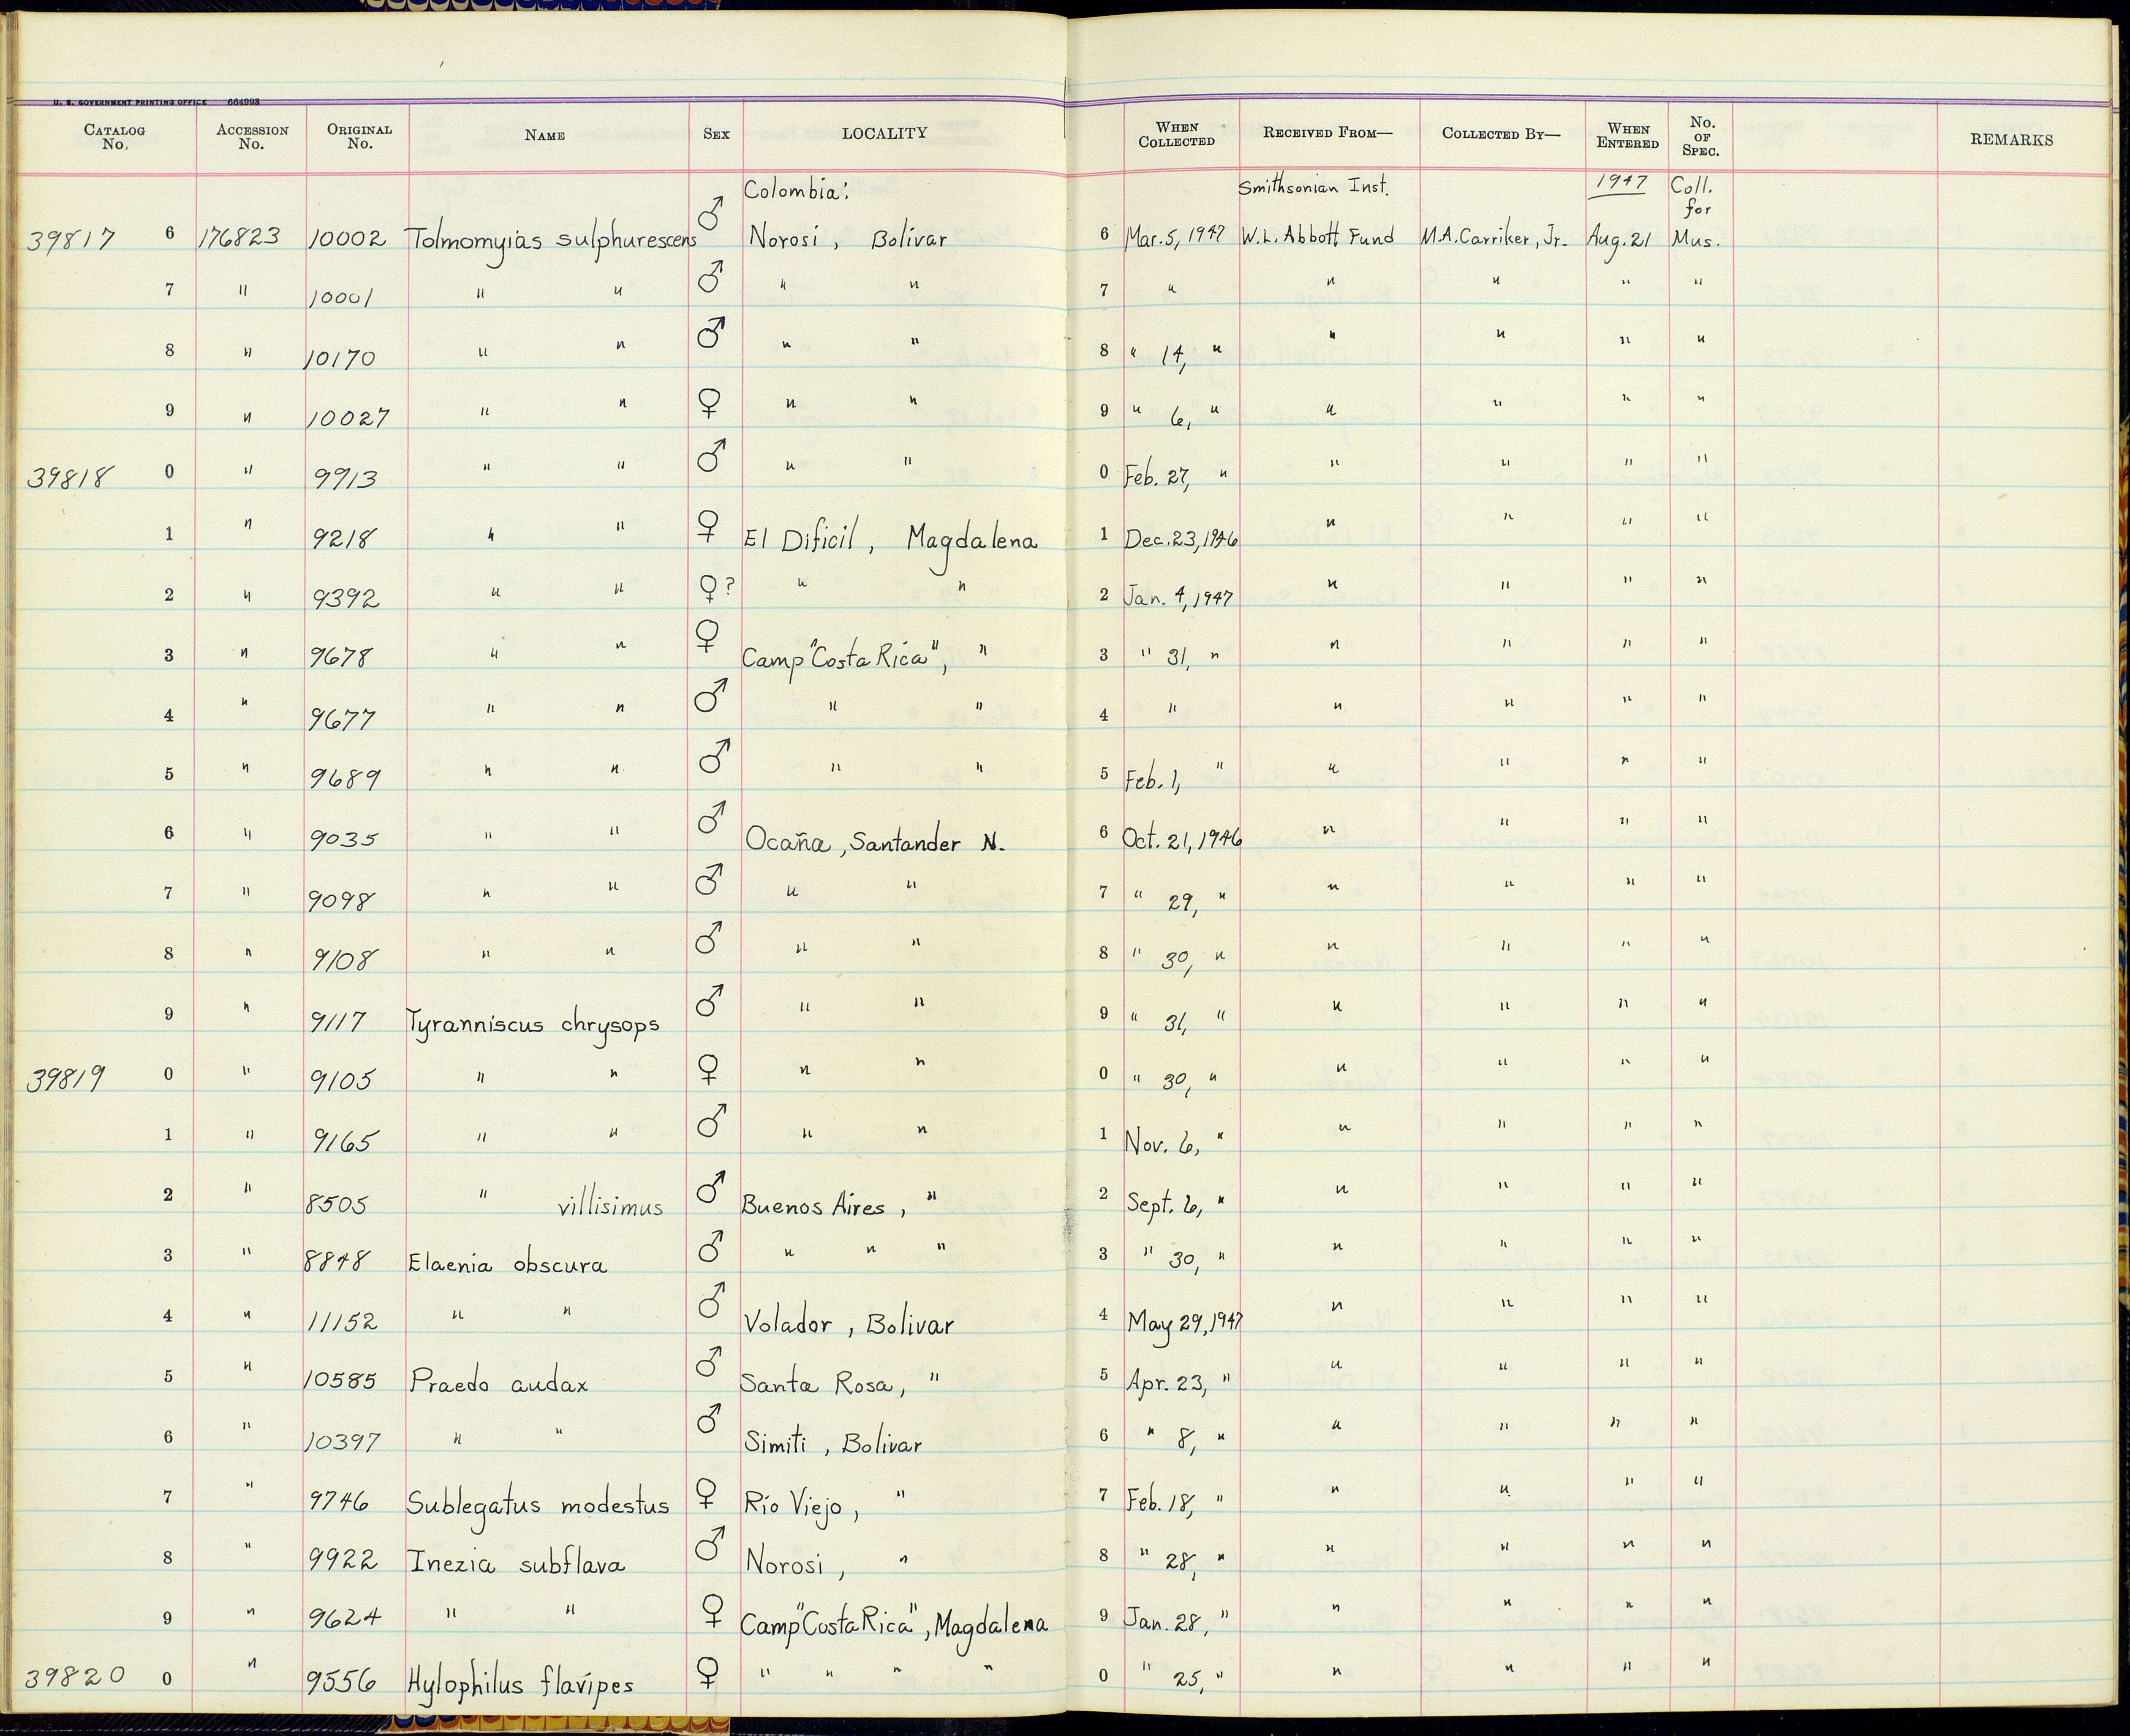 U. S. GOVERNMENT PRINTING OFFICE 664993
CATALOG No. ACCESSION No. ORIGINAL No. NAME SEX LOCALITY WHEN COLLECTED RECEIVED FROM— COLLECTED BY— WHEN ENTERED No. OF SPEC. REMARKS
Colombia: Smithsonian Inst. 1947 Coll. for
39817 6 176823 10002 Tolmomyias sulphurescens ♂ Norosi, Bolivar 6 Mar. 5, 1947 W.L. Abbott Fund M.A. Carriker, Jr. Aug. 21 Mus.
7 " 10001 " " ♂ " " 7 " " " " "
8 " 10170 " " ♂ " " 8 " 14, " " " " "
9 " 10027 " " ♀ " " 9 " 6, " " " " "
39818 0 " 9913 " " ♂ " " 0 Feb. 27, " " " " "
1 " 9218 " " ♀ El Dificil, Magdalena 1 Dec. 23, 1946 " " " "
2 " 9392 " " ♀? " " 2 Jan. 4, 1947 " " " "
3 " 9678 " " ♀ Camp "Costa Rica", " 3 " 31, " " " " "
4 " 9677 " " ♂ " " 4 " " " " "
5 " 9689 " " ♂ " " 5 Feb. 1, " " " " "
6 " 9035 " " ♂ Ocaña, Santander N. 6 Oct. 21, 1946 " " " "
7 " 9098 " " ♂ " " 7 " 29, " " " " "
8 " 9108 " " ♂ " " 8 " 30, " " " " "
9 " 9117 Tyranniscus chrysops ♂ " " 9 " 31, " " " " "
39819 0 " 9105 " " ♀ " " 0 " 30, " " " " "
1 " 9165 " " ♂ " " 1 Nov. 6, " " " " "
2 " 8505 " villisimus ♂ Buenos Aires, " 2 Sept. 6, " " " " "
3 " 8848 Elaenia obscura ♂ " " " 3 " 30, " " " " "
4 " 11152 " " ♂ Volador, Bolivar 4 May 29, 1947 " " " "
5 " 10585 Praedo audax ♂ Santa Rosa, " 5 Apr. 23, " " " " "
6 " 10397 " " ♂ Simiti, Bolivar 6 " 8, " " " " "
7 " 9746 Sublegatus modestus ♀ Rio Viejo, " 7 Feb. 18, " " " " "
8 " 9922 Inezia subflava ♂ Norosi, " 8 " 28, " " " " "
9 " 9624 " " ♀ Camp "Costa Rica", Magdalena 9 Jan. 28, " " " " "
39820 0 " 9556 Hylophilus flavipes ♀ " " " " 0 " 25, " " " " "